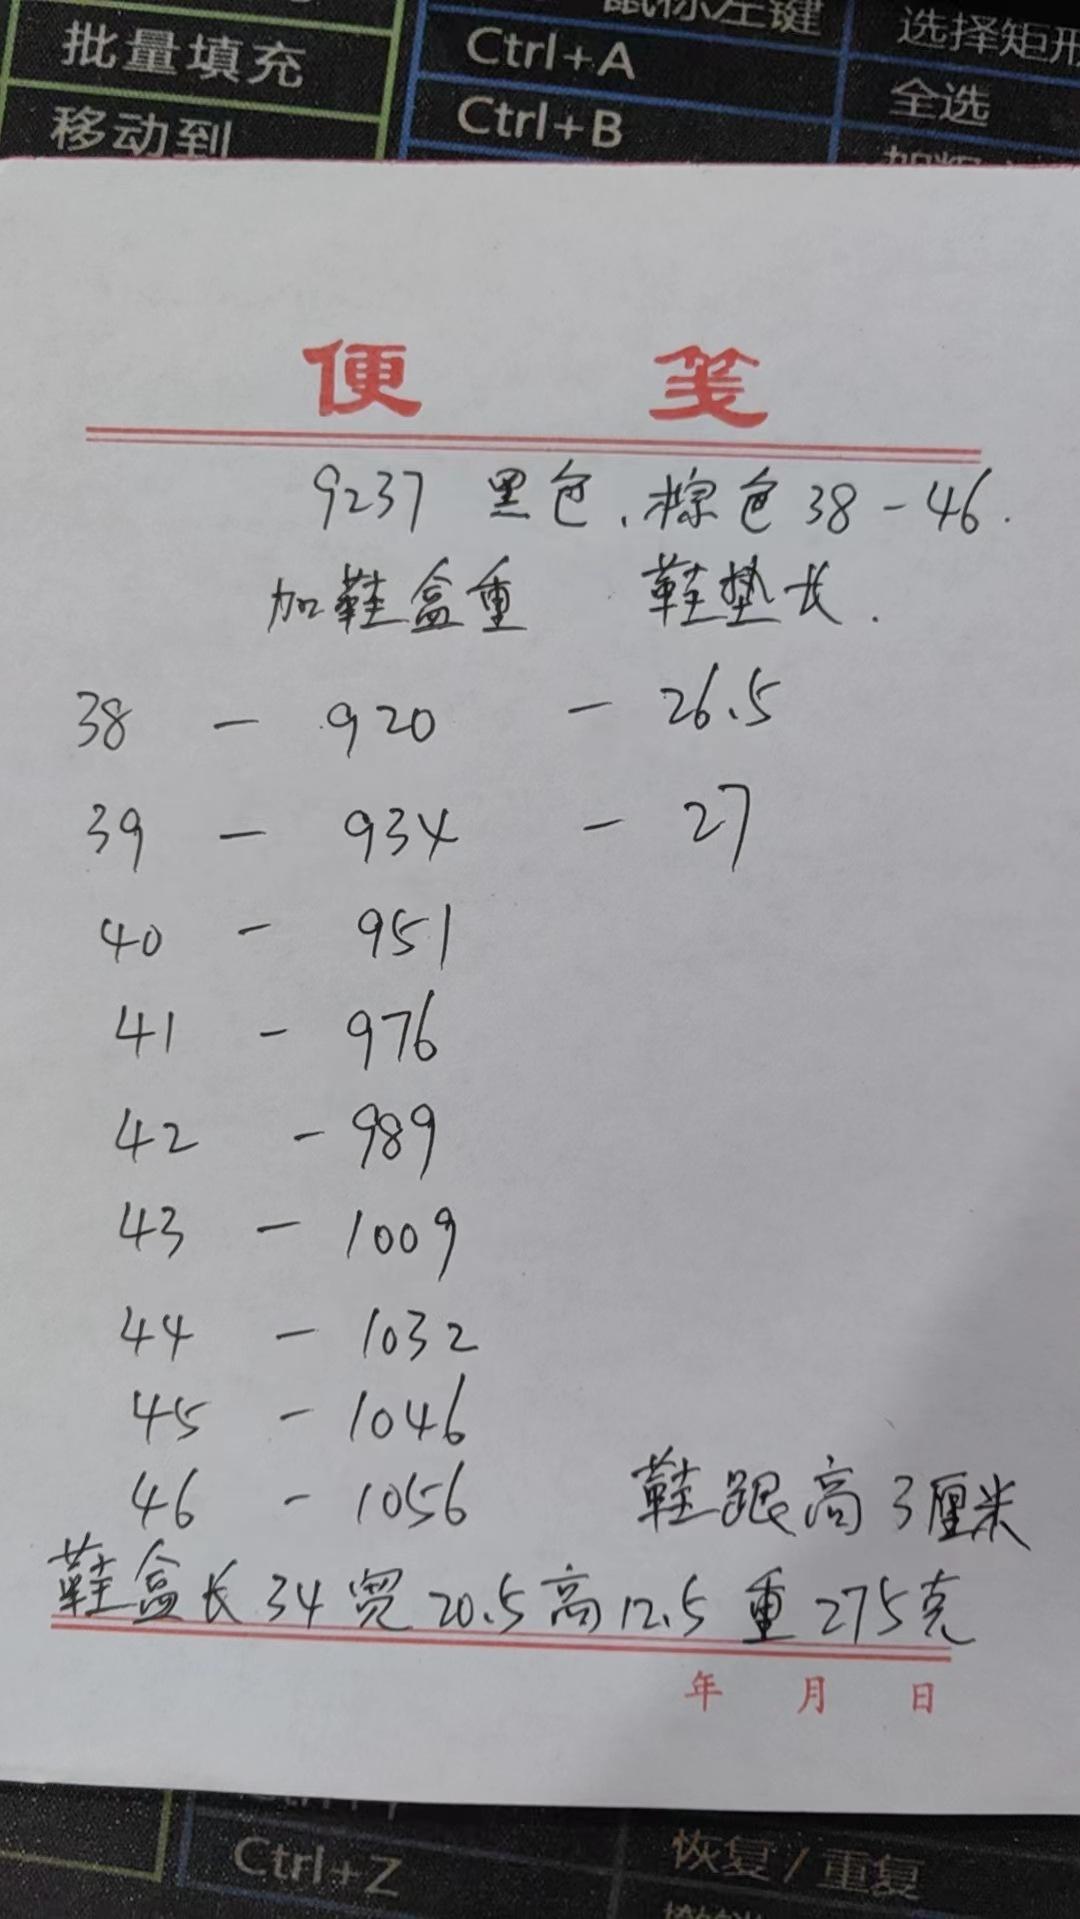 批量填充
移动到
鼠标左键
Ctrl+A
全选
Ctrl+B
选择矩形
便 笺
9237 黑色、棕色 38-46.
加鞋盒重 鞋垫长.
38 - 920 - 26.5
39 - 934 - 27
40 - 951
41 - 976
42 - 989
43 - 1009
44 - 1032
45 - 1046
46 - 1056 鞋跟高3厘米
鞋盒长34宽20.5高12.5重275克
年 月 日
Ctrl+Z
恢复/重复